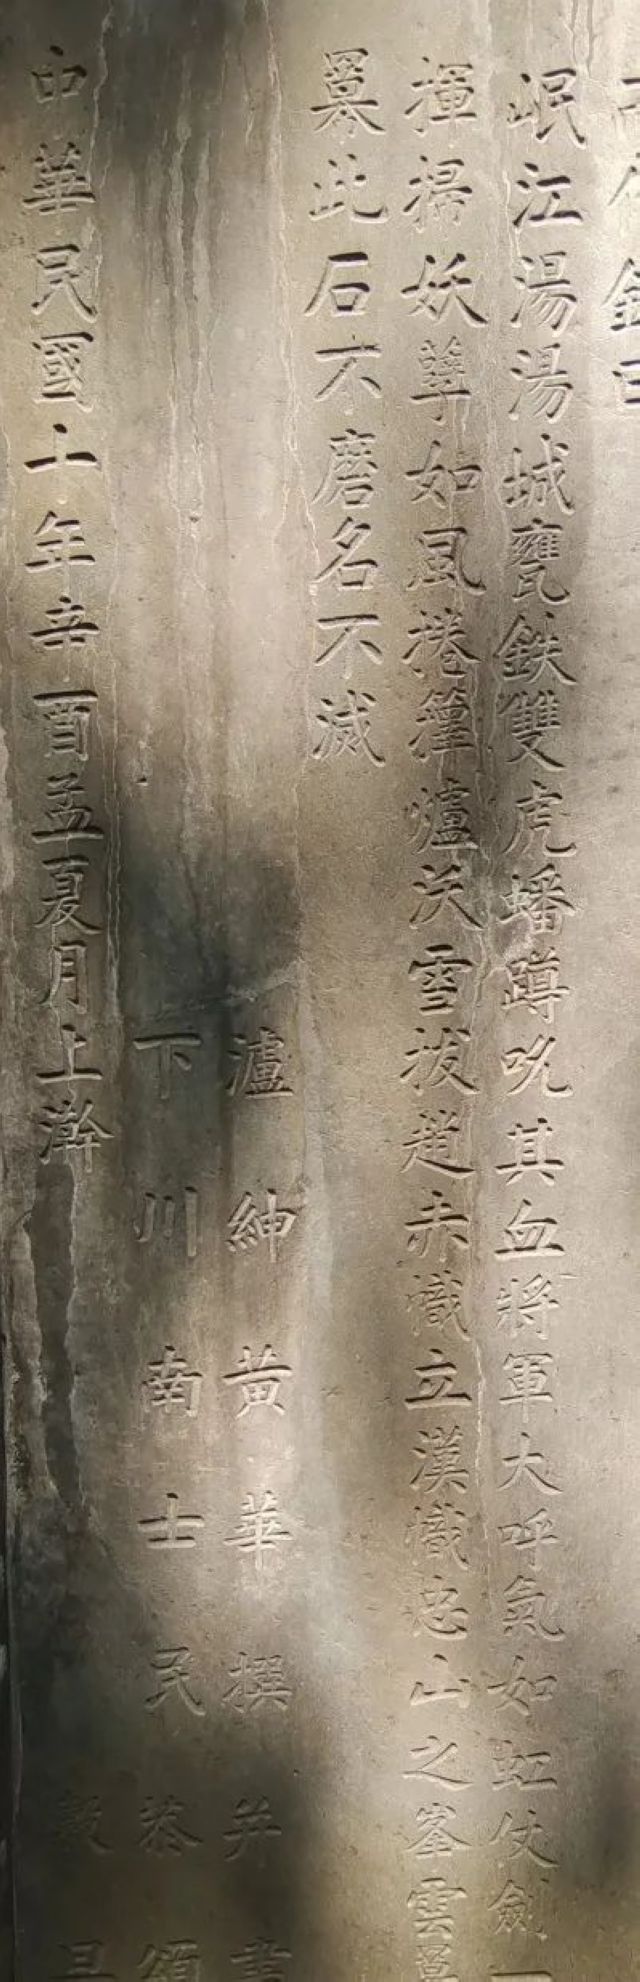 岷江湯湯城甕鉄雙虎蟠蹲吮其血將軍大呼氣如虹仗劍一
揮掃妖孽如風捲籜爐沃雪拔趙赤幟立漢幟忠山之峯雲
羃此石不磨名不滅
瀘紳黃華撰并書
下川南士民恭頌
中華民國十年辛酉孟夏月上澣 穀旦